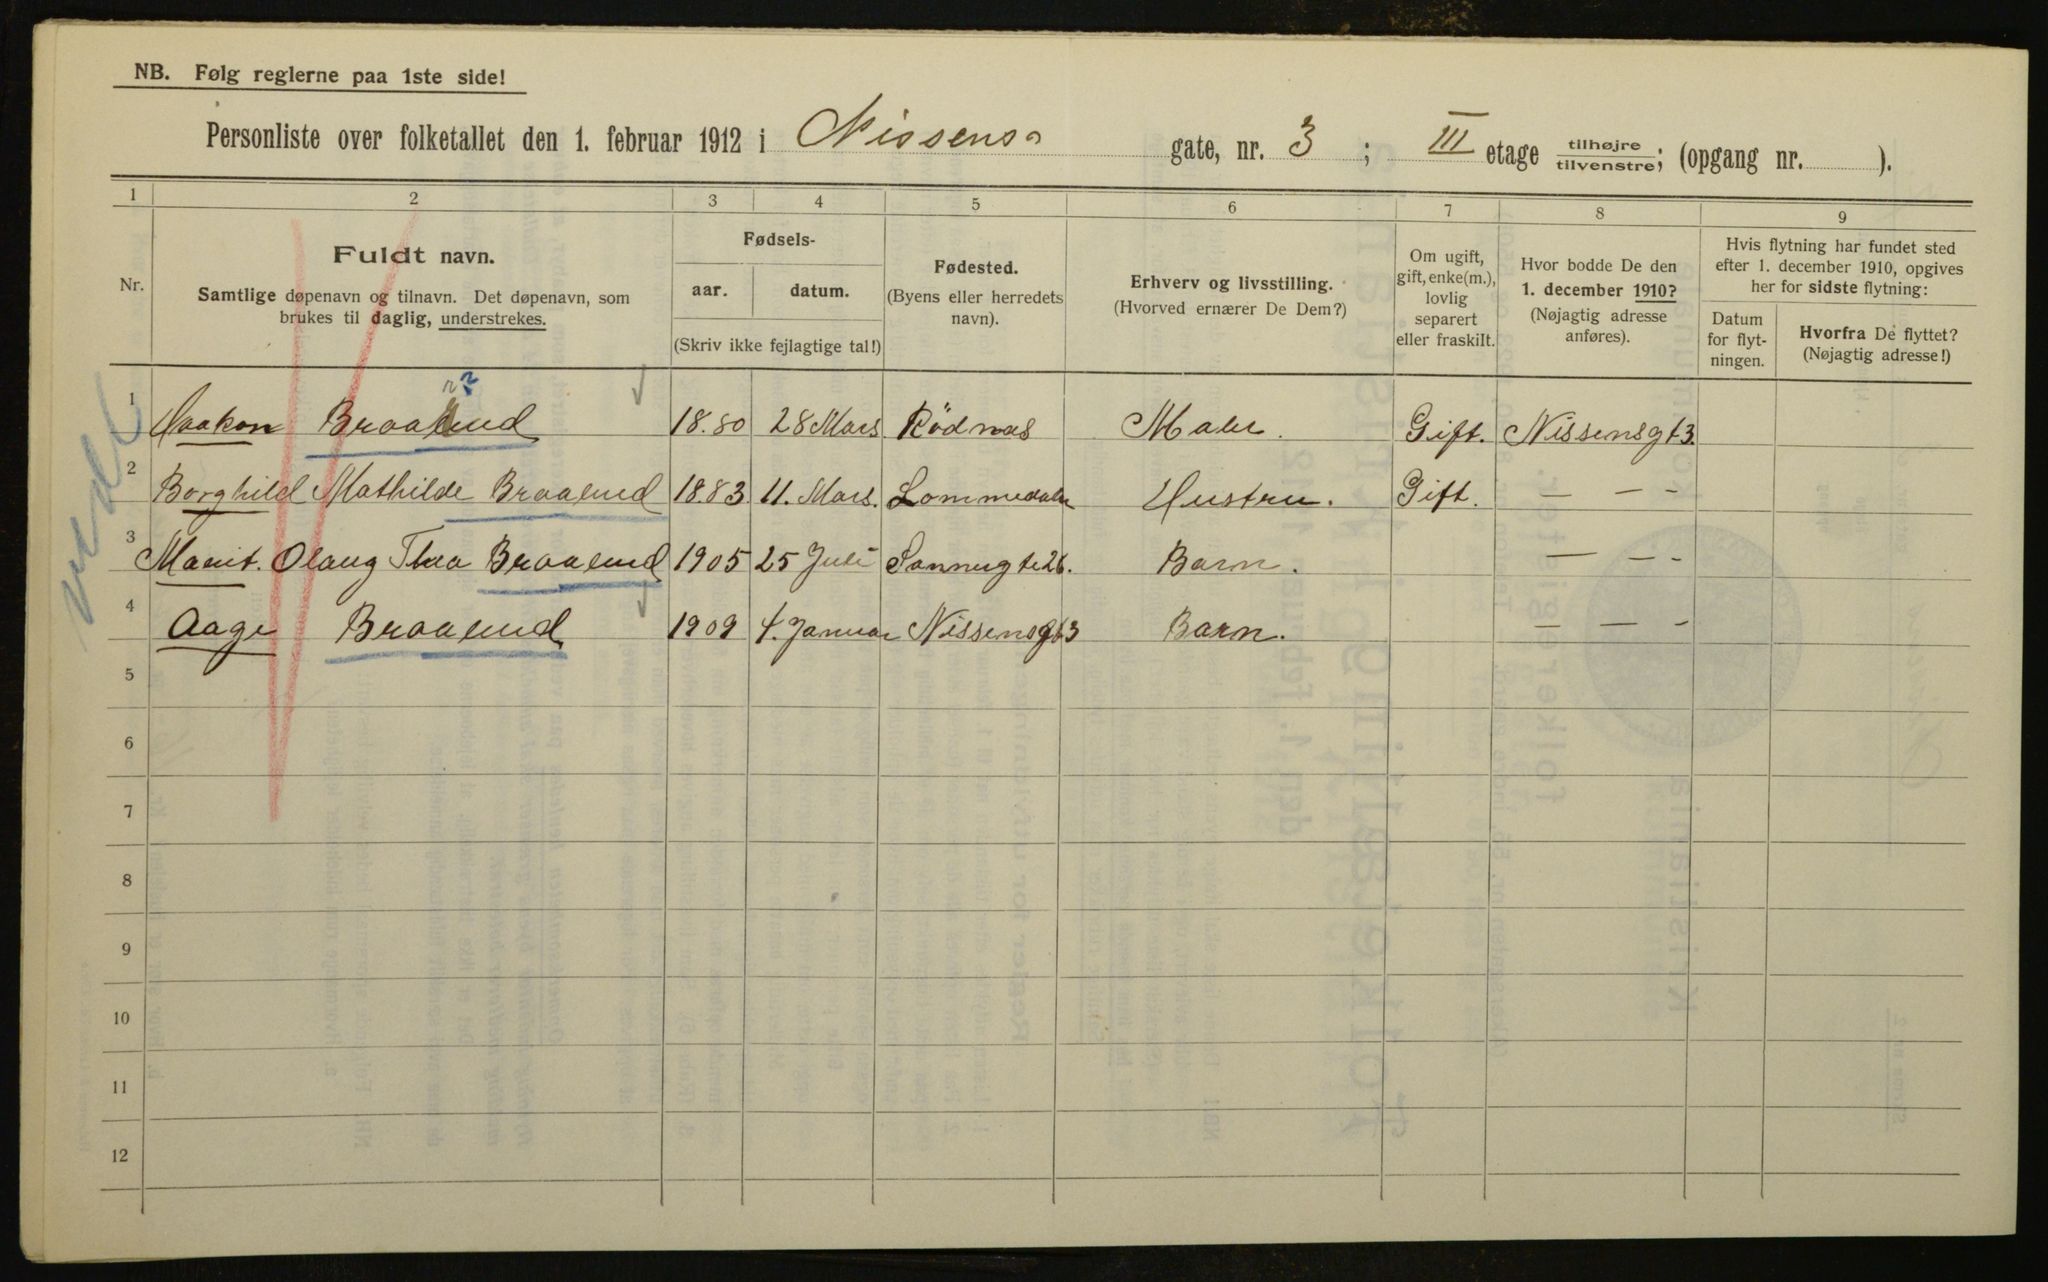 NB. Følg reglerne paa 1ste side!
Personliste over folketallet den 1. februar 1912 i Nissens gate, nr. 3 ; III etage tilhøjre/tilvenstre; (opgang nr. ).
1 2 3 4 5 6 7 8 9
Nr.
Fuldt navn.
Samtlige døpenavn og tilnavn. Det døpenavn, som
brukes til daglig, understrekes.
Fødsels-
aar. datum.
(Skriv ikke fejlagtige tal!)
Fødested.
(Byens eller herredets
navn).
Erhverv og livsstilling.
(Hvorved ernærer De Dem?)
Om ugift,
gift, enke(m.),
lovlig
separert
eller fraskilt.
Hvor bodde De den
1. december 1910?
(Nøjagtig adresse
anføres).
Hvis flytning har fundet sted
efter 1. december 1910, opgives
her for sidste flytning:
Datum
for flyt-
ningen.
Hvorfra De flyttet?
(Nøjagtig adresse!)
1 Haakon 18.80 28 Mars Rödnas Maler. Gift. Nissensgt 3.
2 Borghild Mathilde Braalund 1883 11. Mars. Lommedalen Hustru. Gift. — — —
3 Marit. Olaug Braalund 1905 25 Juli 26. Barn. — — —
4 Aage Braalund 1909 4. Januar Nissensgt 3 Barn. — — —
5
6
7
8
9
10
11
12